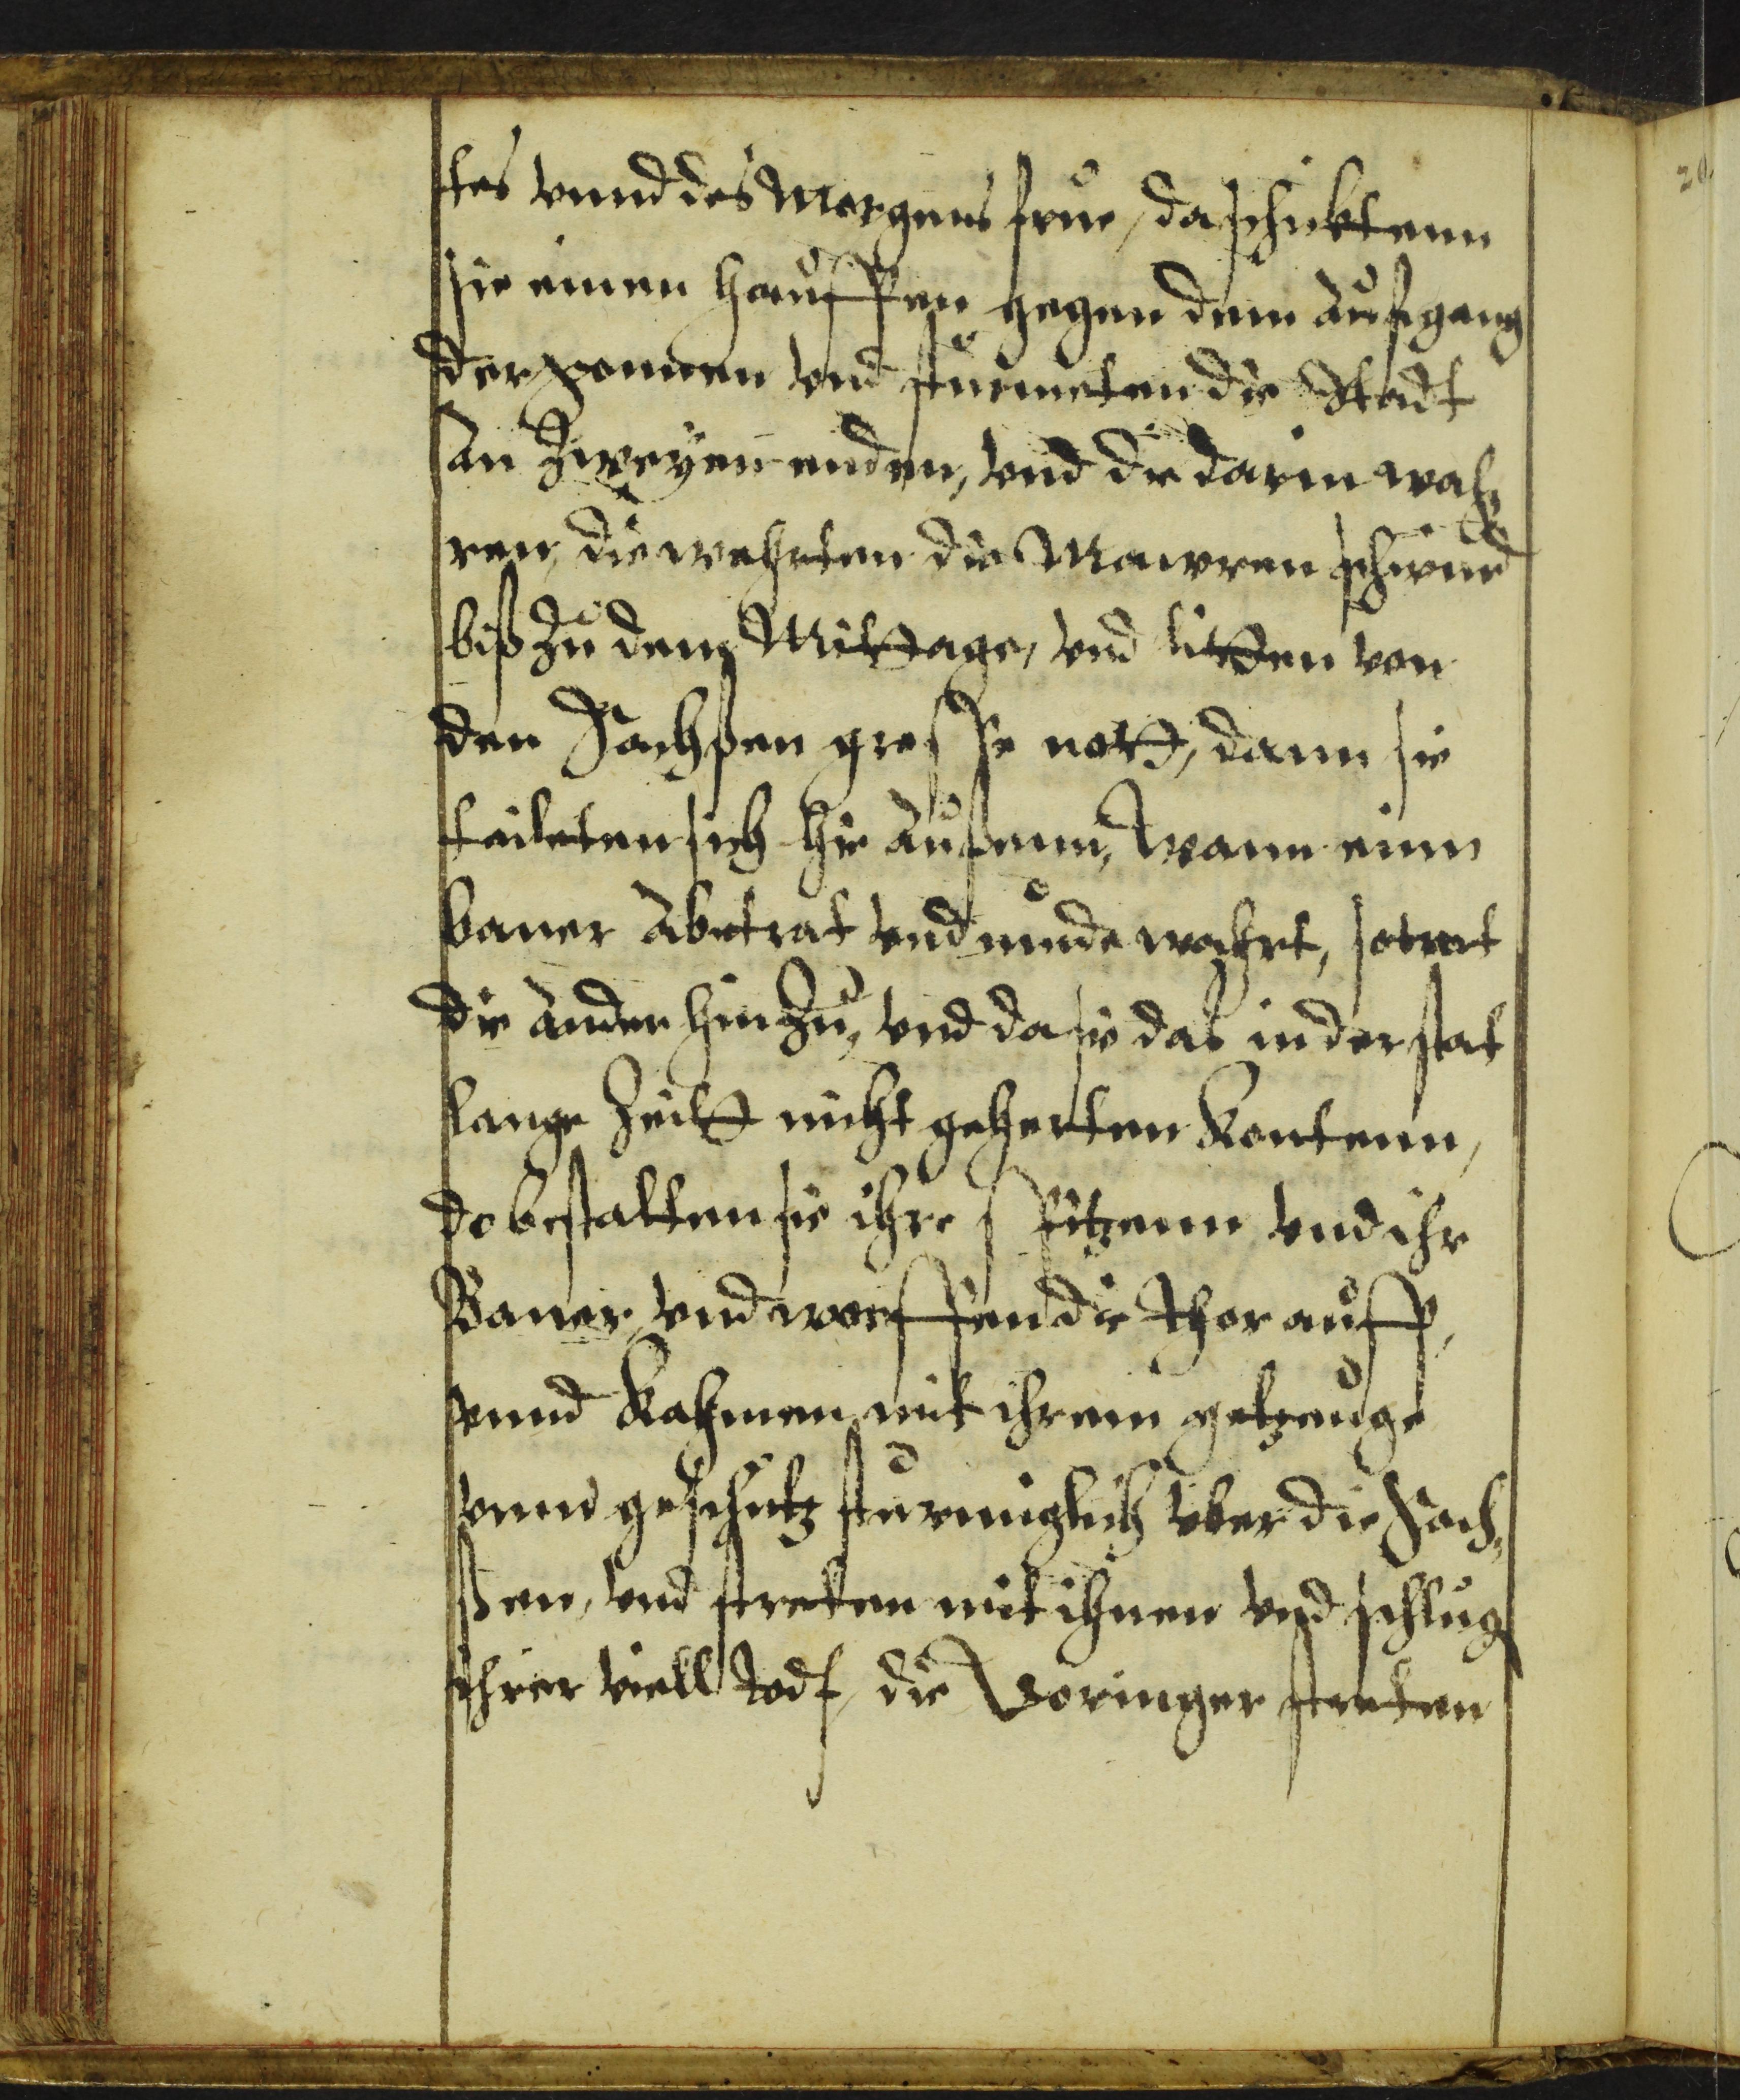 tes vnnd des Morgens frue, da schicktenn
sie einen hauffen gegen dem aufgang
der sonnen vnd stürmeten die Stadt
an Zweyen enden, vnd die darin wah,
ren, die wehrten die Mawren schwind
biß Zu dem Mittage, vnd litten von
den Sachßen grosse nott, dann sie
taileten sich hie außenn, wann einn
baner abetrat vnd müde wahrt, so trat
die ander hin Zu, vnd da sie das in der stat
lange Zeitt nicht geherten kontenn,
do bestalten sie ihre spitzenn vnd ihr
Baner vnd worffen die thor auff,
vnnd kahmen mit ihrem getzeuge
vnnd geschütz stürmiglich vber die Sach,
ßen, vnd streten mit ihnen vnd schlug
ihrer viell todt, die Döringer streten
20